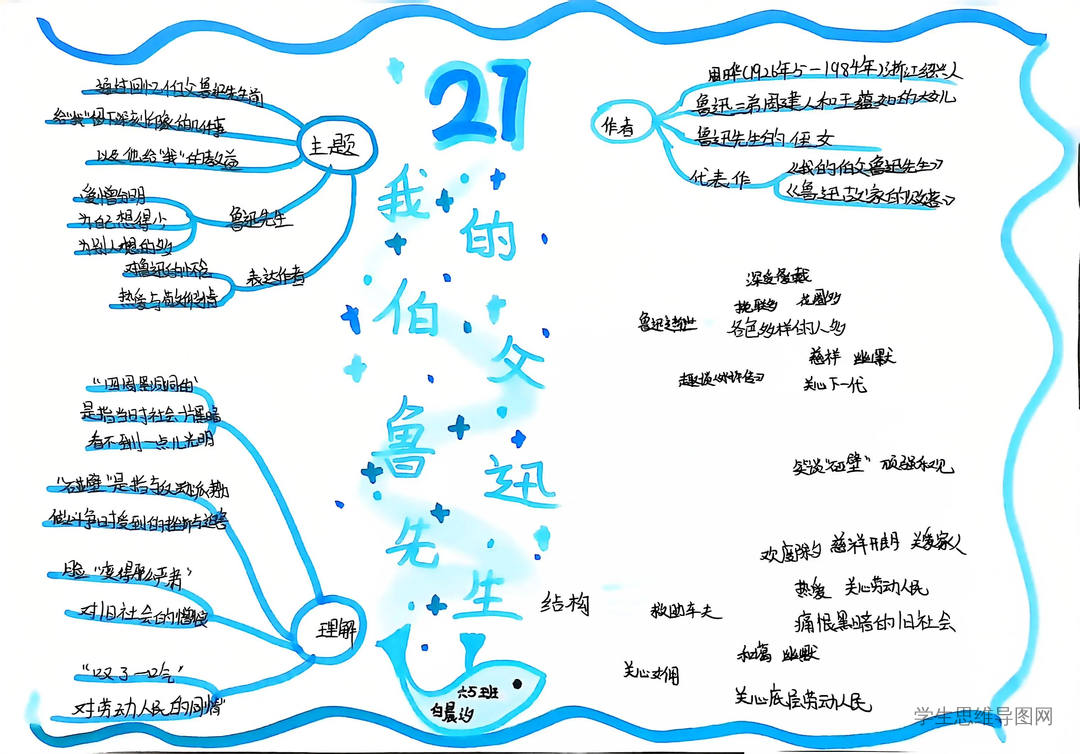 27
我的伯父鲁迅先生
主题
通过回忆伯父鲁迅先生生前
给"我"留下深刻印象的几件事
以及他给"我"的教益
鲁迅先生
爱憎分明
为自己想得少
为别人想的多
表达作者
对鲁迅的怀念
热爱与敬仰之情
作者
周晔(1926年5-1984年)浙江绍兴人
鲁迅三弟周建人和王蕴如的大女儿
鲁迅先生的侄女
代表作
《我的伯父鲁迅先生》
《鲁迅故家的败落》
理解
"四周黑洞洞的"
是指当时社会一片黑暗
看不到一点儿光明
"碰壁"是指与反动势力
做斗争时受到的挫折与迫害
对旧社会的憎恨
"叹了一口气"
对劳动人民的同情
结构
鲁迅逝世
深受爱戴
挽联多 花圈多
各色各样的人多
慈祥 幽默
关心下一代
笑谈"碰壁" 顽强乐观
欢度除夕 慈祥开朗 关爱家人
救助车夫
热爱 关心劳动人民
痛恨黑暗的旧社会
关心女佣
和蔼 幽默
关心底层劳动人民
六5班
学生思维导图网